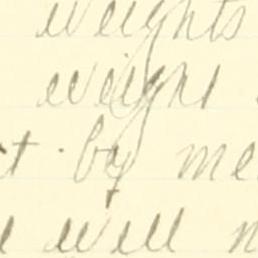 weights
weight
by me
will